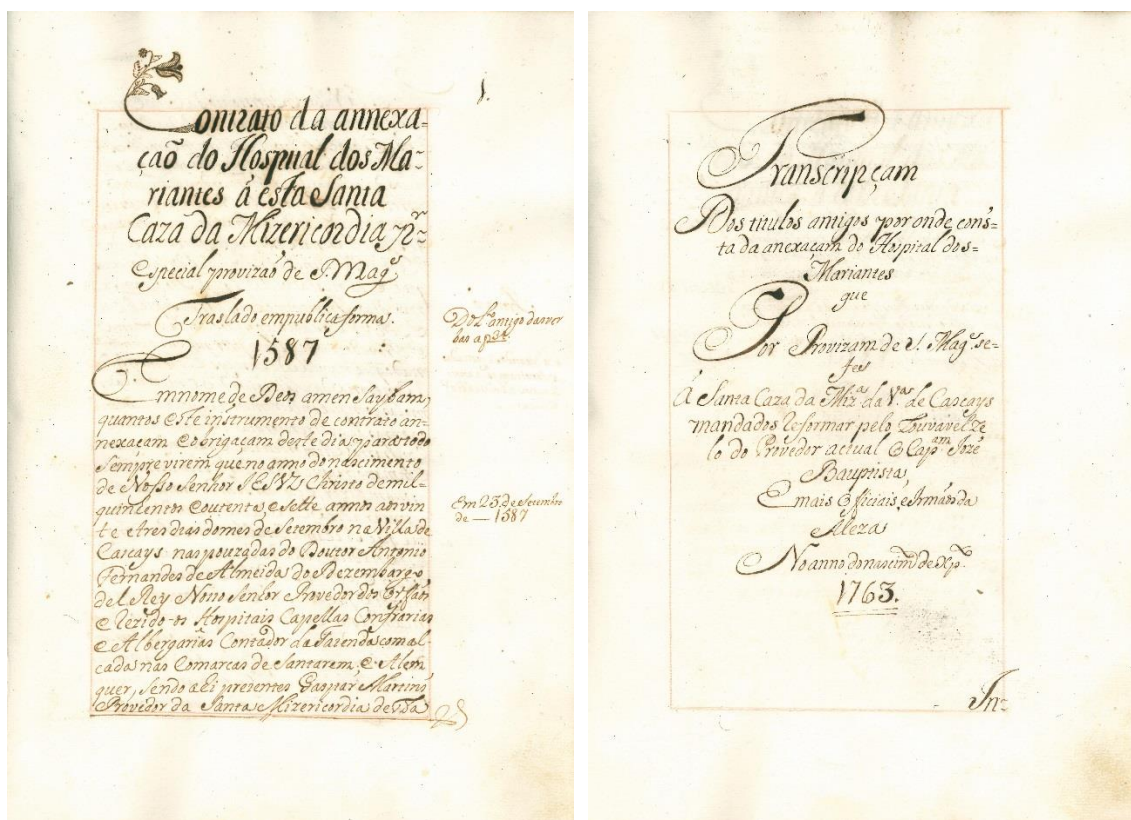 1.
Contrato da annexa=
çaõ do Hospital dos Ma=
riantes á esta Santa
Caza da Mizericordia pr.
especial provizaõ de S. Mag.e
Traslado em publica forma.
1587
Em nome de Deos amen Saybam,
quantos este instrumento de contrato an-
nexaçam e obrigaçam deste dia para todo
sempre virem que no anno do nascimento
de Nosso Senhor JESUS Christo de mil-
quinhentos e outenta, e sette annos aos vin
te e tres dias do mes de Setembro na Villa de
Cascays nas pouzadas do Doutor Antonio
Fernandes de Almeida do Dezembargo
del Rey Nosso Senhor Provedor dos Orfaõs
e Rezidos Hospitais Capellas Confrarias
e Albergarias Contador da fazenda comal-
cada nas Comarcas de Santarem, e Alem
quer, sendo ahi prezentes Gaspar Martins
Provedor da Santa Mizericordia de
Do L.o antigo
Em 23. de Setembro
de — 1587
Transcripçam
Dos titulos antigos por onde cons=
ta da anexaçam do Hospital dos=
Mariantes
que
Por Provizam de S. Mag.e se=
fes
Á Santa Caza da Miz.a da V.a de Cascays
mandados Reformar pelo Louvavel ze
lo do Provedor actual O Cap.am Joze
Bauptista,
e mais Officiais, e Irmaõs da
Meza
No anno do nascim.to de Xp.o
1763.
In=